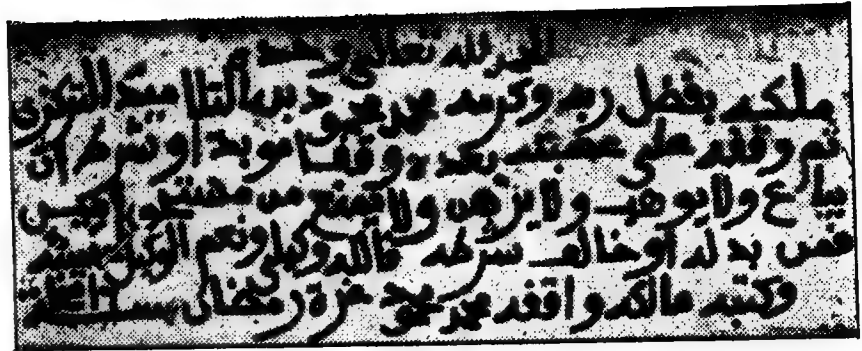 الحمد لله تعالى وحده
ملكه بفضل ربه وكرمه محمد محمود بن التلاميد التركزى
ثم وقفه على عصبته بعده وقفا موبدا وشرط ان
يباع ولا يوهب ولا يرهن ولا يمنع من مستحق
فمن بدله او خالف شرطه فالله وكيلى ونعم الوكيل
وكتبه مالكه واقفه محمد محمود غرة رمضان سنة